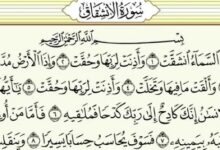 سُورَةُ الِانشِقَاقِ
بِسْمِ ٱللَّهِ ٱلرَّحْمَٰنِ ٱلرَّحِيمِ
ٱلسَّمَآءُ ٱنشَقَّتْ ١ وَأَذِنَتْ لِرَبِّهَا وَحُقَّتْ ٢ وَإِذَا ٱلْأَرْضُ مُدَّ
وَأَلْقَتْ مَا فِيهَا وَتَخَلَّتْ ٤ وَأَذِنَتْ لِرَبِّهَا وَحُقَّتْ ٥ يَٰٓأَيُّهَا
نسَٰنُ إِنَّكَ كَادِحٌ إِلَىٰ رَبِّكَ كَدْحًا فَمُلَٰقِيهِ ٦ فَأَمَّا مَنْ أُو
بِيَمِينِهِۦ ٧ فَسَوْفَ يُحَاسَبُ حِسَابًا يَسِيرًا ٨ وَيَنقَلِبُ